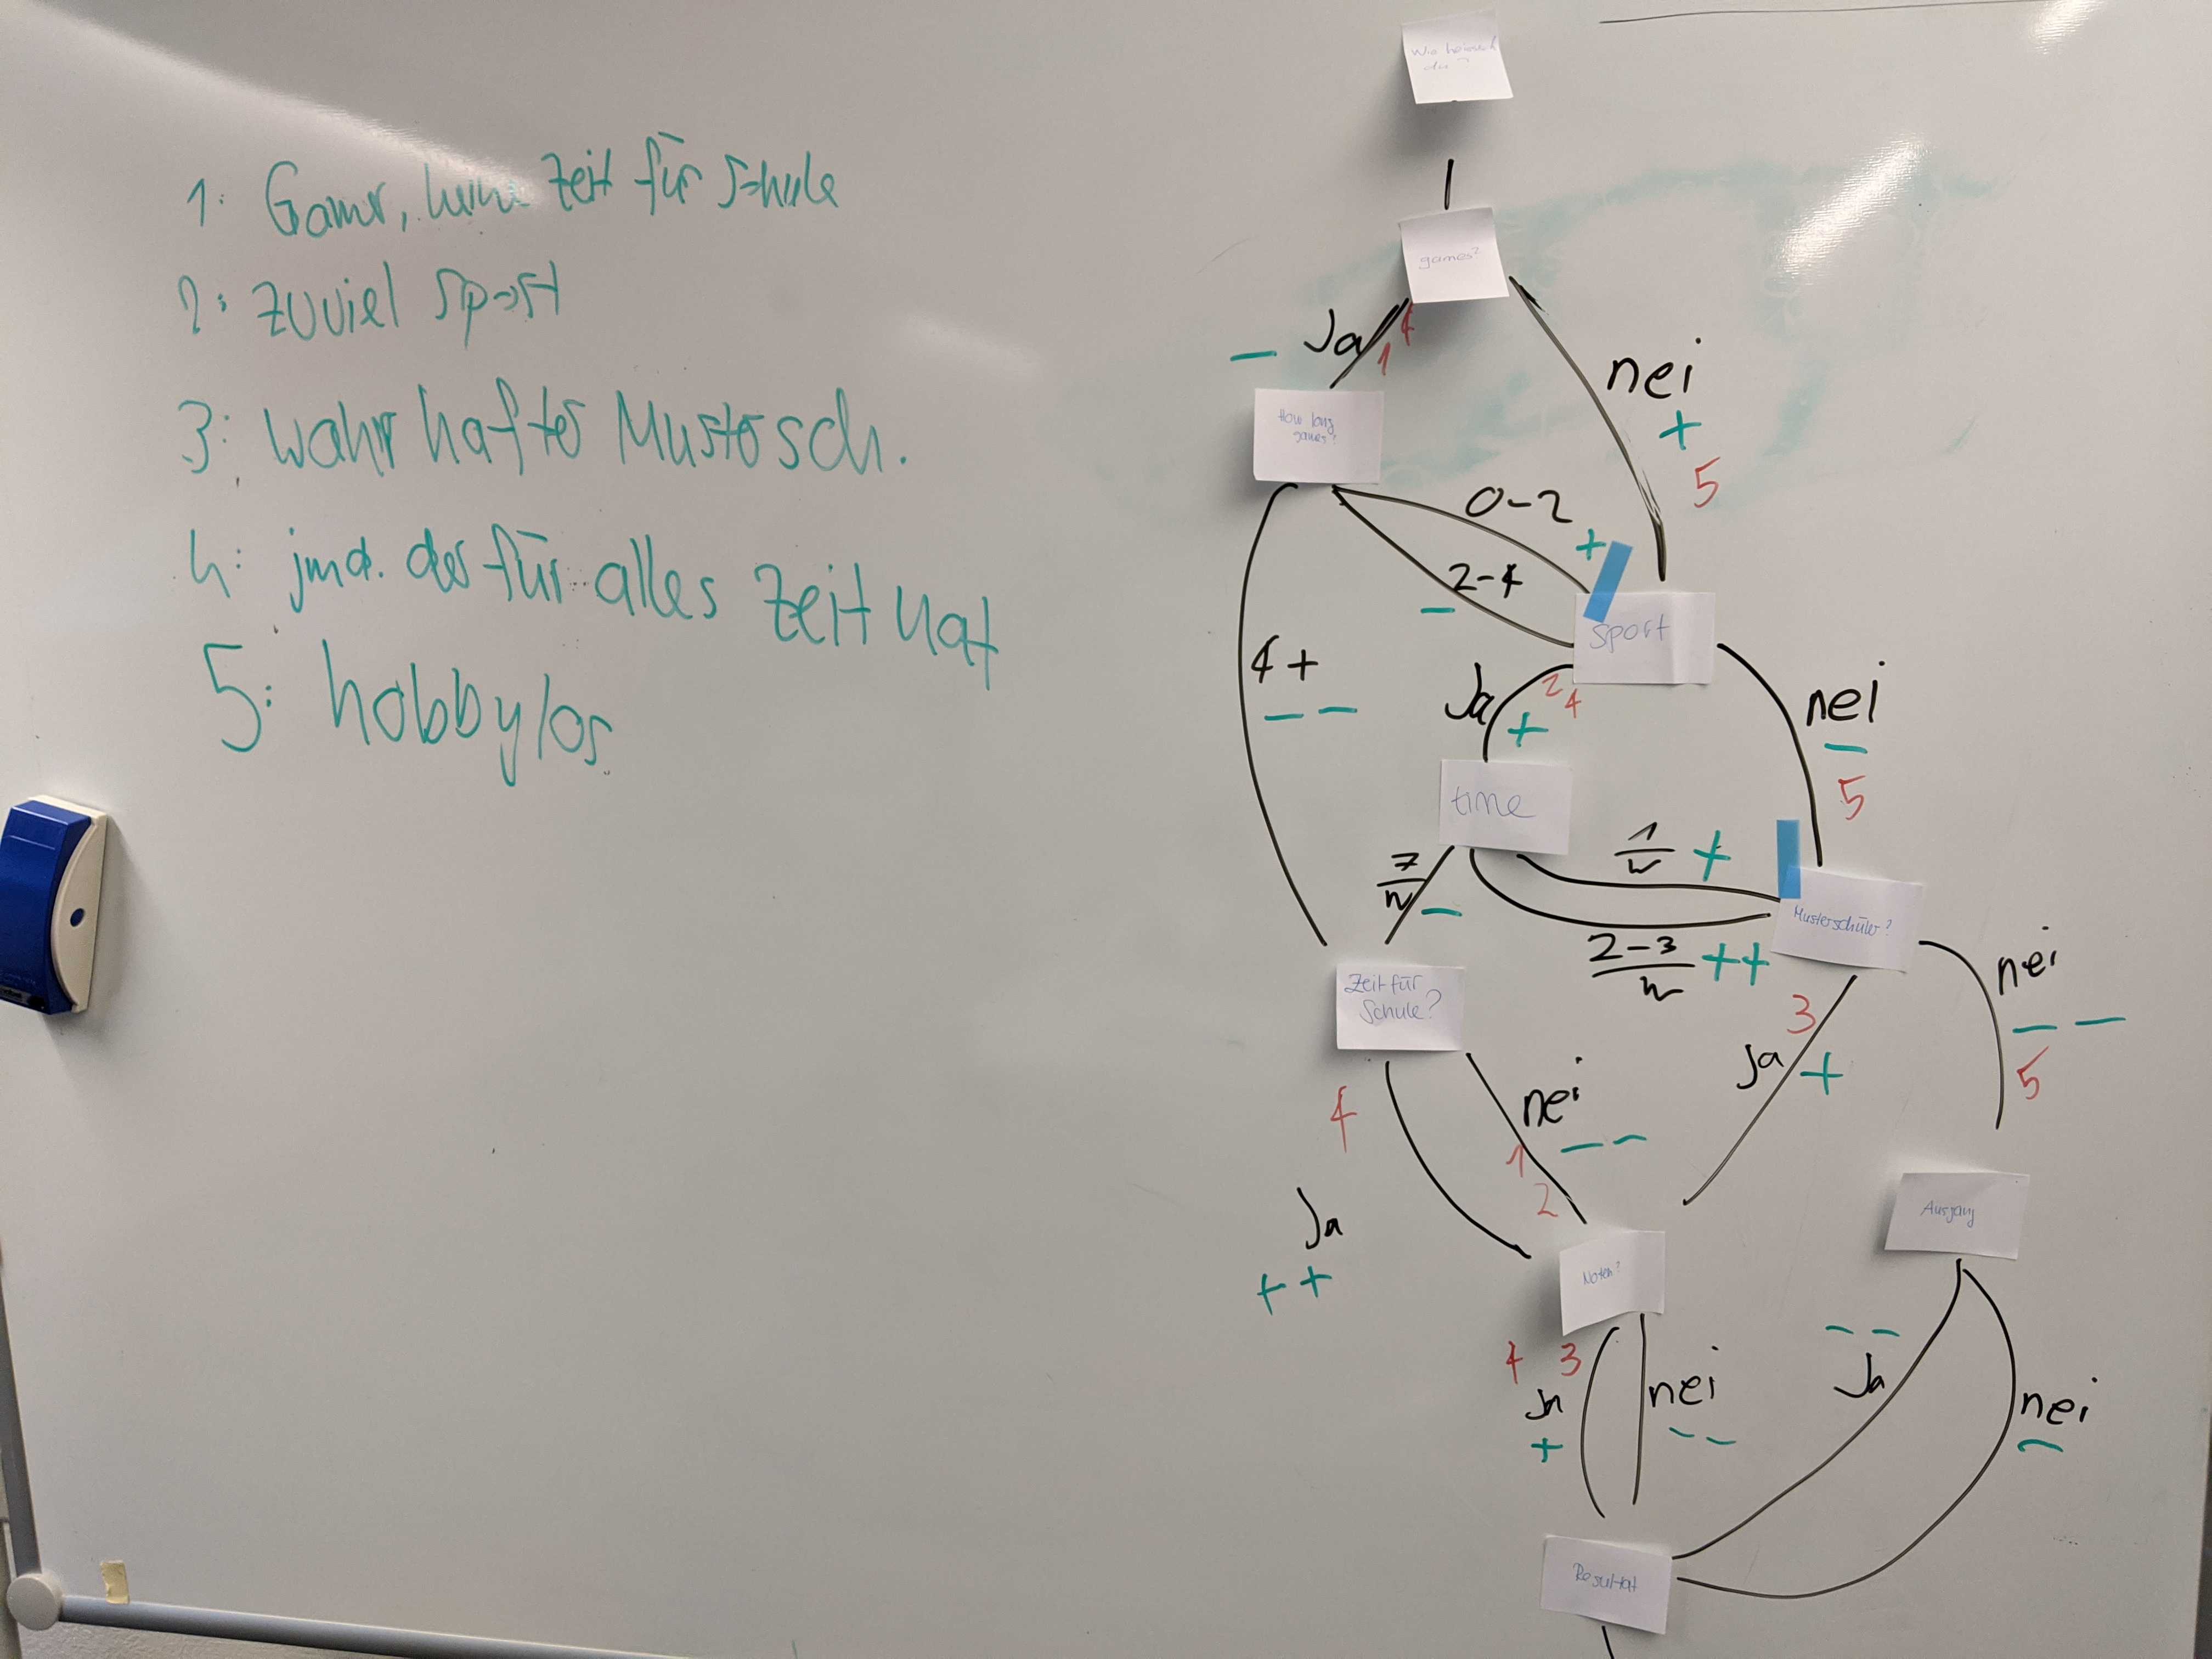 1: Gamer, keine Zeit für Schule
2: zuviel Sport
3: wahrhafter Mustersch.
4: jmd. der für alles Zeit hat
5: hobbylos
Wie heissch
du?
games?
Ja
-
1 4
nei
+
5
How long
games?
0-2
+
2-4
-
4+
- -
Sport
Ja
+
2
4
nei
-
5
time
1/w +
7/w
-
2-3/w ++
Musterschüler?
nei
- -
5
3
Ja
+
Zeit für
Schule?
4
Ja
++
nei
- -
1
2
Ausgang
Noten?
4 3
Ja
+
nei
- -
- -
Ja
nei
-
Resultat